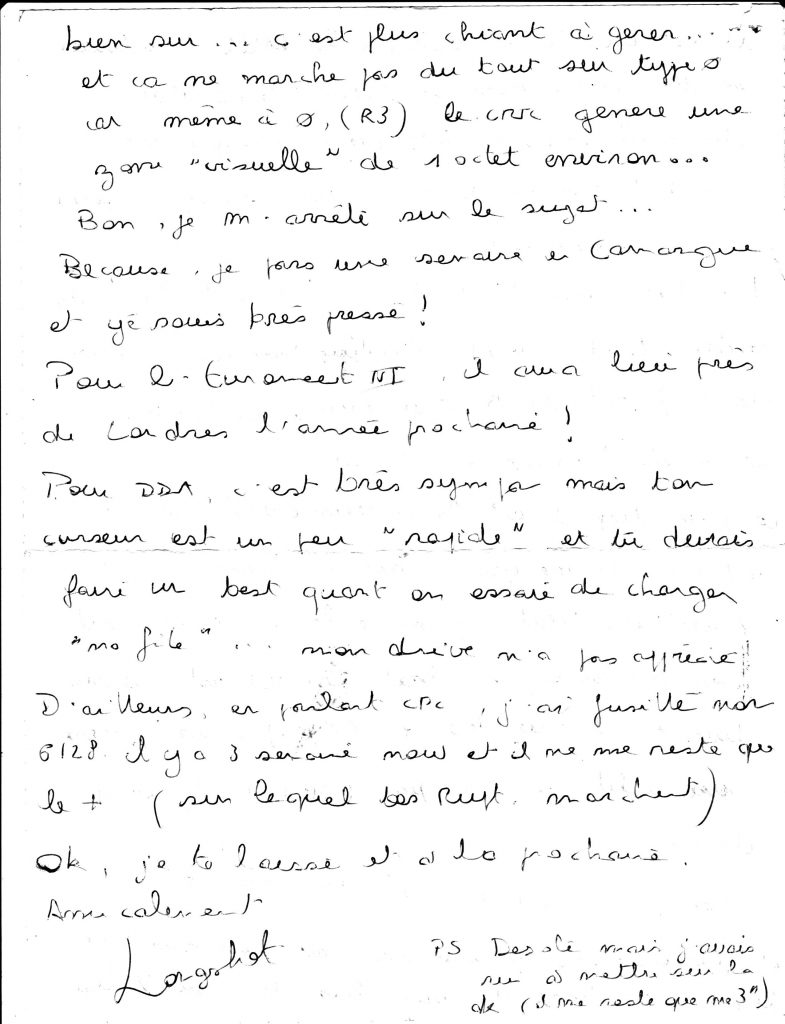 bien sur... c'est plus chiant à gerer...
et ca ne marche pas du tout sur type 0
car même à 0, (R3) le crtc genere une
zone "visuelle" de 1 octet environ...
Bon, je m'arrête sur le sujet...
Because, je pars une semaine en Camargue
et yé souis très pressé!
Pour l'Euromeet VI, il aura lieu près
de Londres l'année prochaine!
Pour DDA, c'est très sympa mais ton
curseur est un peu "rapide" et tu devrais
faire un test quant on essaie de charger
"no file"... mon drive n'a pas apprécié!
D'ailleurs, en parlant CPC, j'ai fusillé mon
6128 il y a 3 semaine now et il ne me reste que
le + (sur lequel tes Rupt. marchent)
Ok, je te laisse et à la prochaine.
Amicalement
Longshot
PS Desolé mais j'avais
rien à mettre sur la
dk (il me reste que me 3")